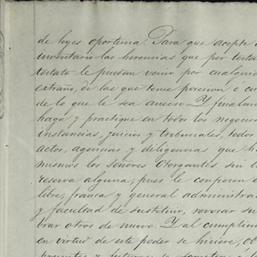 de leyes oportuna. Para que acepte
inventario las herencias que por testa
testato le puedan venir por cualquier
extraño, de las que tome posesion
de lo que le sea anecso. Y finalme
haga y practique en todos los negocio
instancias, juicios y tribunales, todos
actos, agencias y diligencias que h
mismos los señores Otorgantes sin
reserva alguna, pues le confieren
libre, franca y general administra
y facultad de sustituir, revocar su
brar otros de nuevo. Y al cumplim
en virtud de este poder se hiciere, ob
presentes y futuros